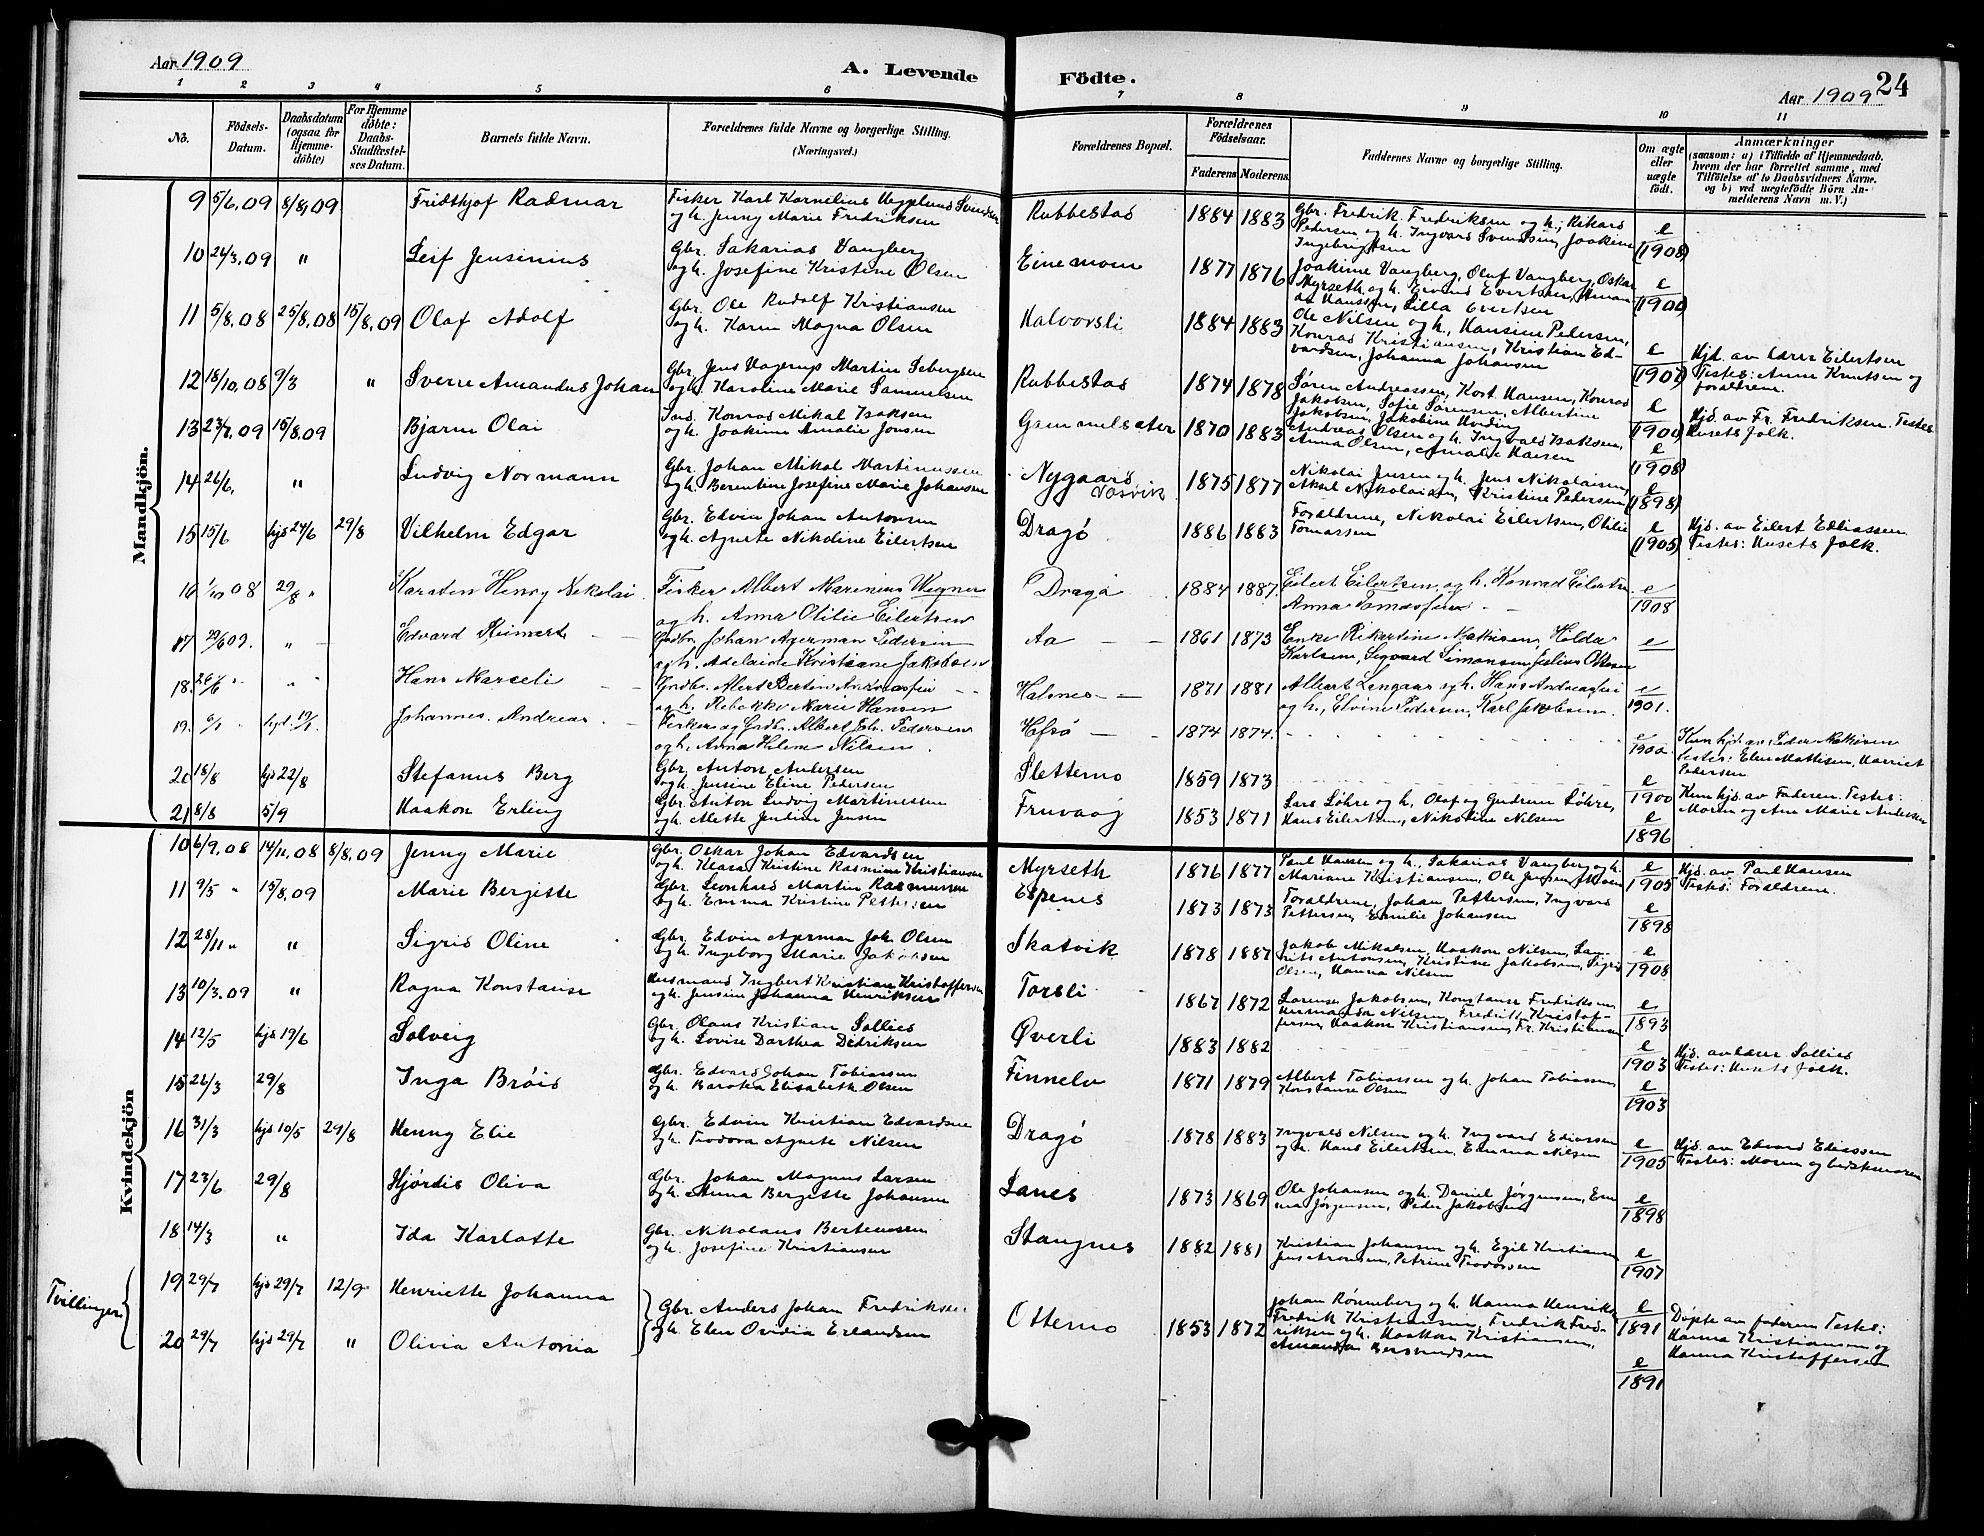 Aar 1909
A. Levende
Födte.
24
Aar 1909
1 2 3 4 5 6 7 8 9 10 11
No.
Födsels-Datum.
Daabsdatum (ogsaa för Hjemme-döbte)
For Hjemme döbte: Daabs-Stadfæstel-ses Datum.
Barnets fulde Navn.
Forældrenes fulde Navne og borgerlige Stilling.
(Næringsvei.)
Forældrenes Bopæl.
Forældrenes Födselsaar.
Faderens
Moderens
Faddernes Navne og borgerlige Stilling.
Om ægte eller uægte födt.
Anmærkninger
(saasom: a) i Tilfælde af Hjemmedaab,
hvem der har forrettet samme, med
Tilföielse af to Daabsvidners Navne.
og b) ved uegtefödte Börn An-
melderens Navn m. V.)
Mandkjön.
9 5/6.09 8/8.09 Fridthjof Radmar Fisker Karl Kornelius Svendsen
og h. Jenny Marie Fredriksen Rubbestad 1884 1883 Gbr. Fredrik Fredriksen og h., Rikard
Pedersen og h. Ingvard Svendsen, Joakim
Ingebrigtsen e (1908)
10 24/3.09 " Leif Jensinius Gbr. Sakarias Vangberg
og h. Josefine Kristine Olsen Einemoen 1877 1876 Joakime Vangberg, Oluf Vangberg, Oskar
Myrseth og h. Eivind Evertsen,
Hanssen, Lilla Evertsen e (1900)
11 5/8.08 25/8.08 15/8.09 Olaf Adolf Gbr. Ole Rudolf Kristiansen
og h. Karen Magna Olsen Halvorsli 1884 1883 Ole Nilsen og h., Hansine Pedersen,
Konrad Kristiansen, Kristian Ed-
vardsen, Johanna Johansen e (1907) Hjd. av lærer Eilertsen
Testes: Anne Knutsen og
forældrene.
12 18/10.08 9/3 " Sverre Amandus Johan Gbr. Jens Martin Sebergsen
og h. Karoline Marie Samuelsen Rubbestad 1874 1878 Søren Andreassen, Kost Hansen, Konrad
Jakobsen, Sofie Sørensen, Albertine
Jakobsen, Jakobine e (1900) Hjd. av Fr. Fredriksen. Testes:
Husets folk.
13 23/7.09 15/8.09 Bjarne Olai Ind. Konrad Mikal Isaksen
og h. Joakime Amalie Jensen 1870 1883 Andreas Olsen og h. Ingvald Isaksen,
Anna Olsen, Amalie Hansen e (1908)
14 26/6. " Ludvig Normann Gbr. Johan Mikal Martinussen
og h. Berentine Josefine Marie Johansen Nygaard
Vasvik 1875 1877 Nikolai Jensen og h. Jens Nikolaisen,
Aksel Nikolaisen, Kristine Pedersen e (1898)
15 15/6 hjd 24/6 29/8 Vilhelm Edgar Gbr. Edvin Johan Antonsen
og h. Agnete Nikoline Eilertsen Dragö 1886 1883 Forældrene, Nikolai Eilertsen, Otilie
Tomassen e (1905) Hjd. av Eilert Eliassen
Testes: Husets folk.
16 1/10 08 29/8 " Karsten Henry Nikolai Fisker Albert Marinius Wegner
og h. Anna Otilie Eilertsen Dragö 1884 1887 Eilert Eilertsen og h. Konrad Eilertsen
Anna Tomassen e 1908
17 09. " Edvard Reimert Gbr. Johan Agerman Pedersen
og h. Adelaide Kristiane Jakobsen Aa 1861 1873 Enke Rikardine Mathisen, Hilda
Karlsen, Sigvard Simonsen, Julius Ottesen e
18. 26/6 " " Hans Marseli Gbr. Alert Bertin Andreassen
og h. Rebekka Marie Hansen Halmes 1871 1881 Albert Lengaas og h. Hans Andreassen
og h., Elvine Pedersen, Karl Jakobsen. e 1901.
19. hjd. Johannes Andreas Fisker og Gbr. Albert Joh. Pedersen
og h. Anna Helene Nilsen. Hofsö 1874 1874. e 1900. Kun hjd. av Peder Mathisen
Testes: Elen Mathisen, Harriet
Pedersen
20 18/8 hjd 22/8 Stefanus Berg Gbr. Anton Andersen
og h. Jensine Eline Pedersen Sletten 1859 1873 e 1900 Kun hjd. av Faderen. Testes:
Moren og Ane Marie Andersen
21 8/8 5/9 Haakon Erling Gbr. Anton Ludvig Martinussen
og h. Mette Jensen Fruvaag 1853 1871 Lars Løhre og h, Olaf og Gudrun Løhre,
Hans Eilertsen, Nikoline Nilsen e 1896
Kvindekjön
10 6/9.08 14/11.08 8/8.09 Jenny Marie Gbr. Oskar Johan Edvardsen
og h. Klara Kristine Rasmine Kristiansen Myrseth 1876 1877 Paul Hansen og h. Sakarias Vangberg og h.
Mariane Kristiansen, Ole Jensen e 1905 Hjd. av Paul Hansen
Testes: Forældrene.
11 9/5 " 15/8.09 Marie Bergitte Gbr. Leonhard Martin Rasmussen
og h. Emma Kristine Pettersen Espenes 1873 1873 Forældrene, Johan Pettersen, Ingvard
Pettersen, Emilie Johansen e 1898
12 28/11 " " Sigrid Oline Gbr. Edvin Agerman Joh. Olsen
og h. Ingeborg Marie Jakobsen Skatvik 1878 1887 Jakob Mikalsen, Haakon Nilsen, Lau-
rits Antonsen, Kristine Jakobsen, Sigrid
Olsen, Hanna Nilsen e 1908
13 10/3.09 " Ragna Konstanse Husmand Ingbert Kristian Kristoffersen
og h. Jensine Johanna Henriksen Torsli 1867 1872 Lorense Jakobsen, Konstanse Fredriksen,
Hermanda Nilsen, Fredrik Kristof-
fersen, Haakon Kristiansen, Fr. Kristiansen e 1893
14 12/5 hjd 19/6 Solveig Gbr. Olaus Kristian Sollies
og h. Lovise Dorthea Didriksen Øverli 1883 1882 e 1903 Hjd. av lærer Sollies
Testes: Husets folk.
15 26/3 29/8 Inga Bröis Gbr. Edvard Johan Tobiassen
og h. Baroka Elisabeth Olsen Finnelv 1871 1879 Albert Tobiassen og h. Johan Tobiassen
Konstanse Olsen e 1903
16 31/3 hjd 10/5 29/8 Henny Elie Gbr. Edvin Kristian Edvardsen
og h. Teodora Agnete Nilsen Dragö 1878 1883 Ingvald Nilsen og h. Ingvard Ediassen
og h. Hans Eilertsen, Emma Nilsen e 1905 Hjd. av Edvard Eliassen
Testes: Moren og bedstemoren
17 23/6 29/8 Hjördis Oliva Gbr. Johan Magnus Larsen
og h. Anna Bergitte Johansen Lanes 1873 1869 Ole Johansen og h. Daniel Jørgensen, Em-
ma Jørgensen, Peder Jakobsen e 1898
18 14/3 " Ida Karlotte Gbr. Nikolaus Berteussen
og h. Josefine Kristiansen Stangnes 1882 1881 Kristian Johansen og h. Egil Kristiansen
Jens Aronsen, Petrine Teodorsen e 1907
Tvillinger
19 29/7 hjd 29/7 12/9 Henriette Johanna Gbr. Anders Johan Fredriksen
og h. Elen Ovidia Erlandsen Otterno 1853 1872 Johan Rønneberg og h. Hanna Henriksen
Fredrik Kristiansen, Fredrik Fred-
riksen og h. Haakon Kristiansen,
Amanda e 1891 Døpte av faderen Testes:
Hanna Kristiansen og
Hanna Kristoffersen
20 29/7 hjd 29/7 " Olivia Antonia e 1891